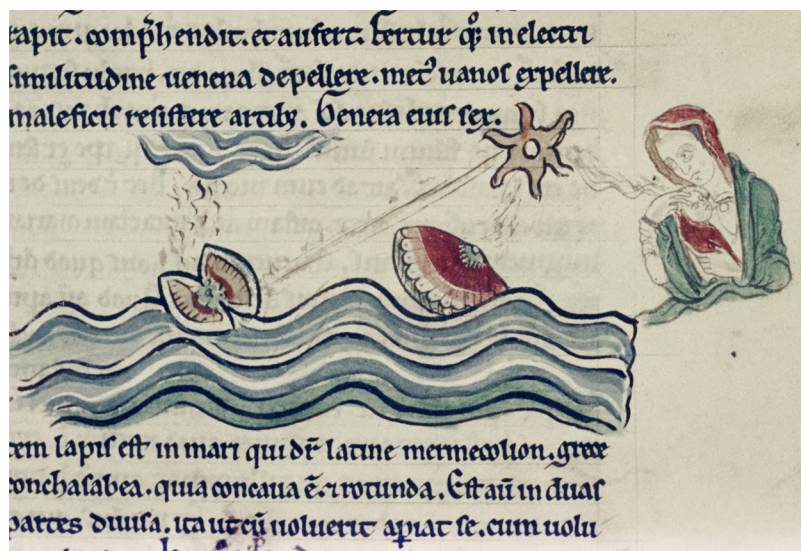 rapit. comp̄hendit. et aufert. Fertur qͦ in electri
similitudine uenena depellere. metꝰ uanos expellere.
maleficis resistere artibꝫ. Genera eius sex.
tem lapis est in mari qui dr̄ latine mermecolion. grece
conchasabea. quia concaua ē. ⁊ rotunda. Est aū in duas
partes diuisa. ita ut cū uoluerit apiat se. cum uolu